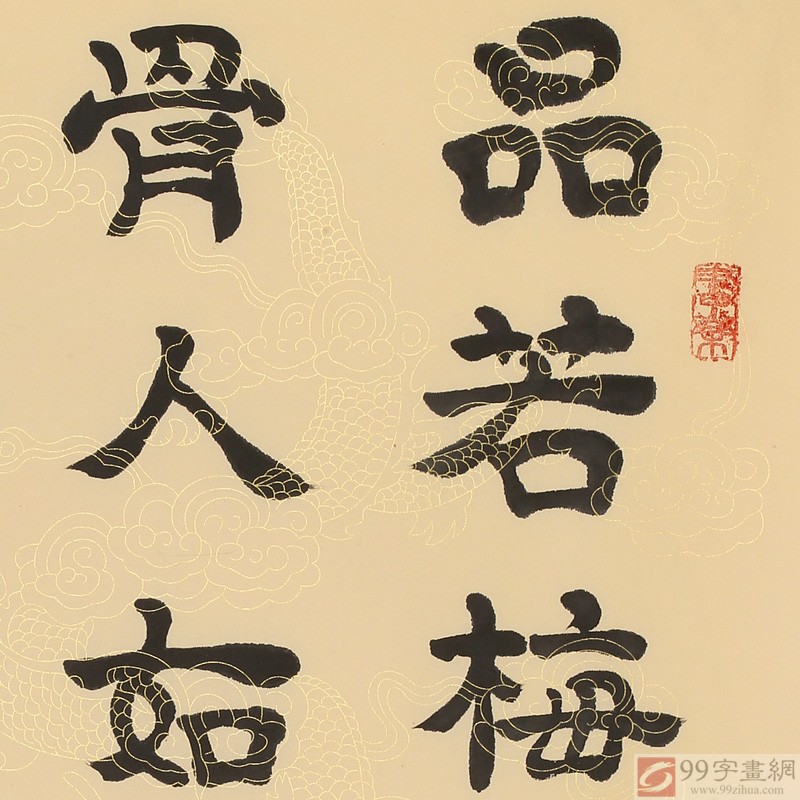 品若梅
骨人如
99字畫網
www.99zihua.com